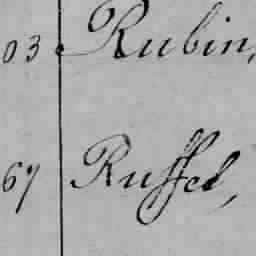 03 Rubin,
67 Russel,